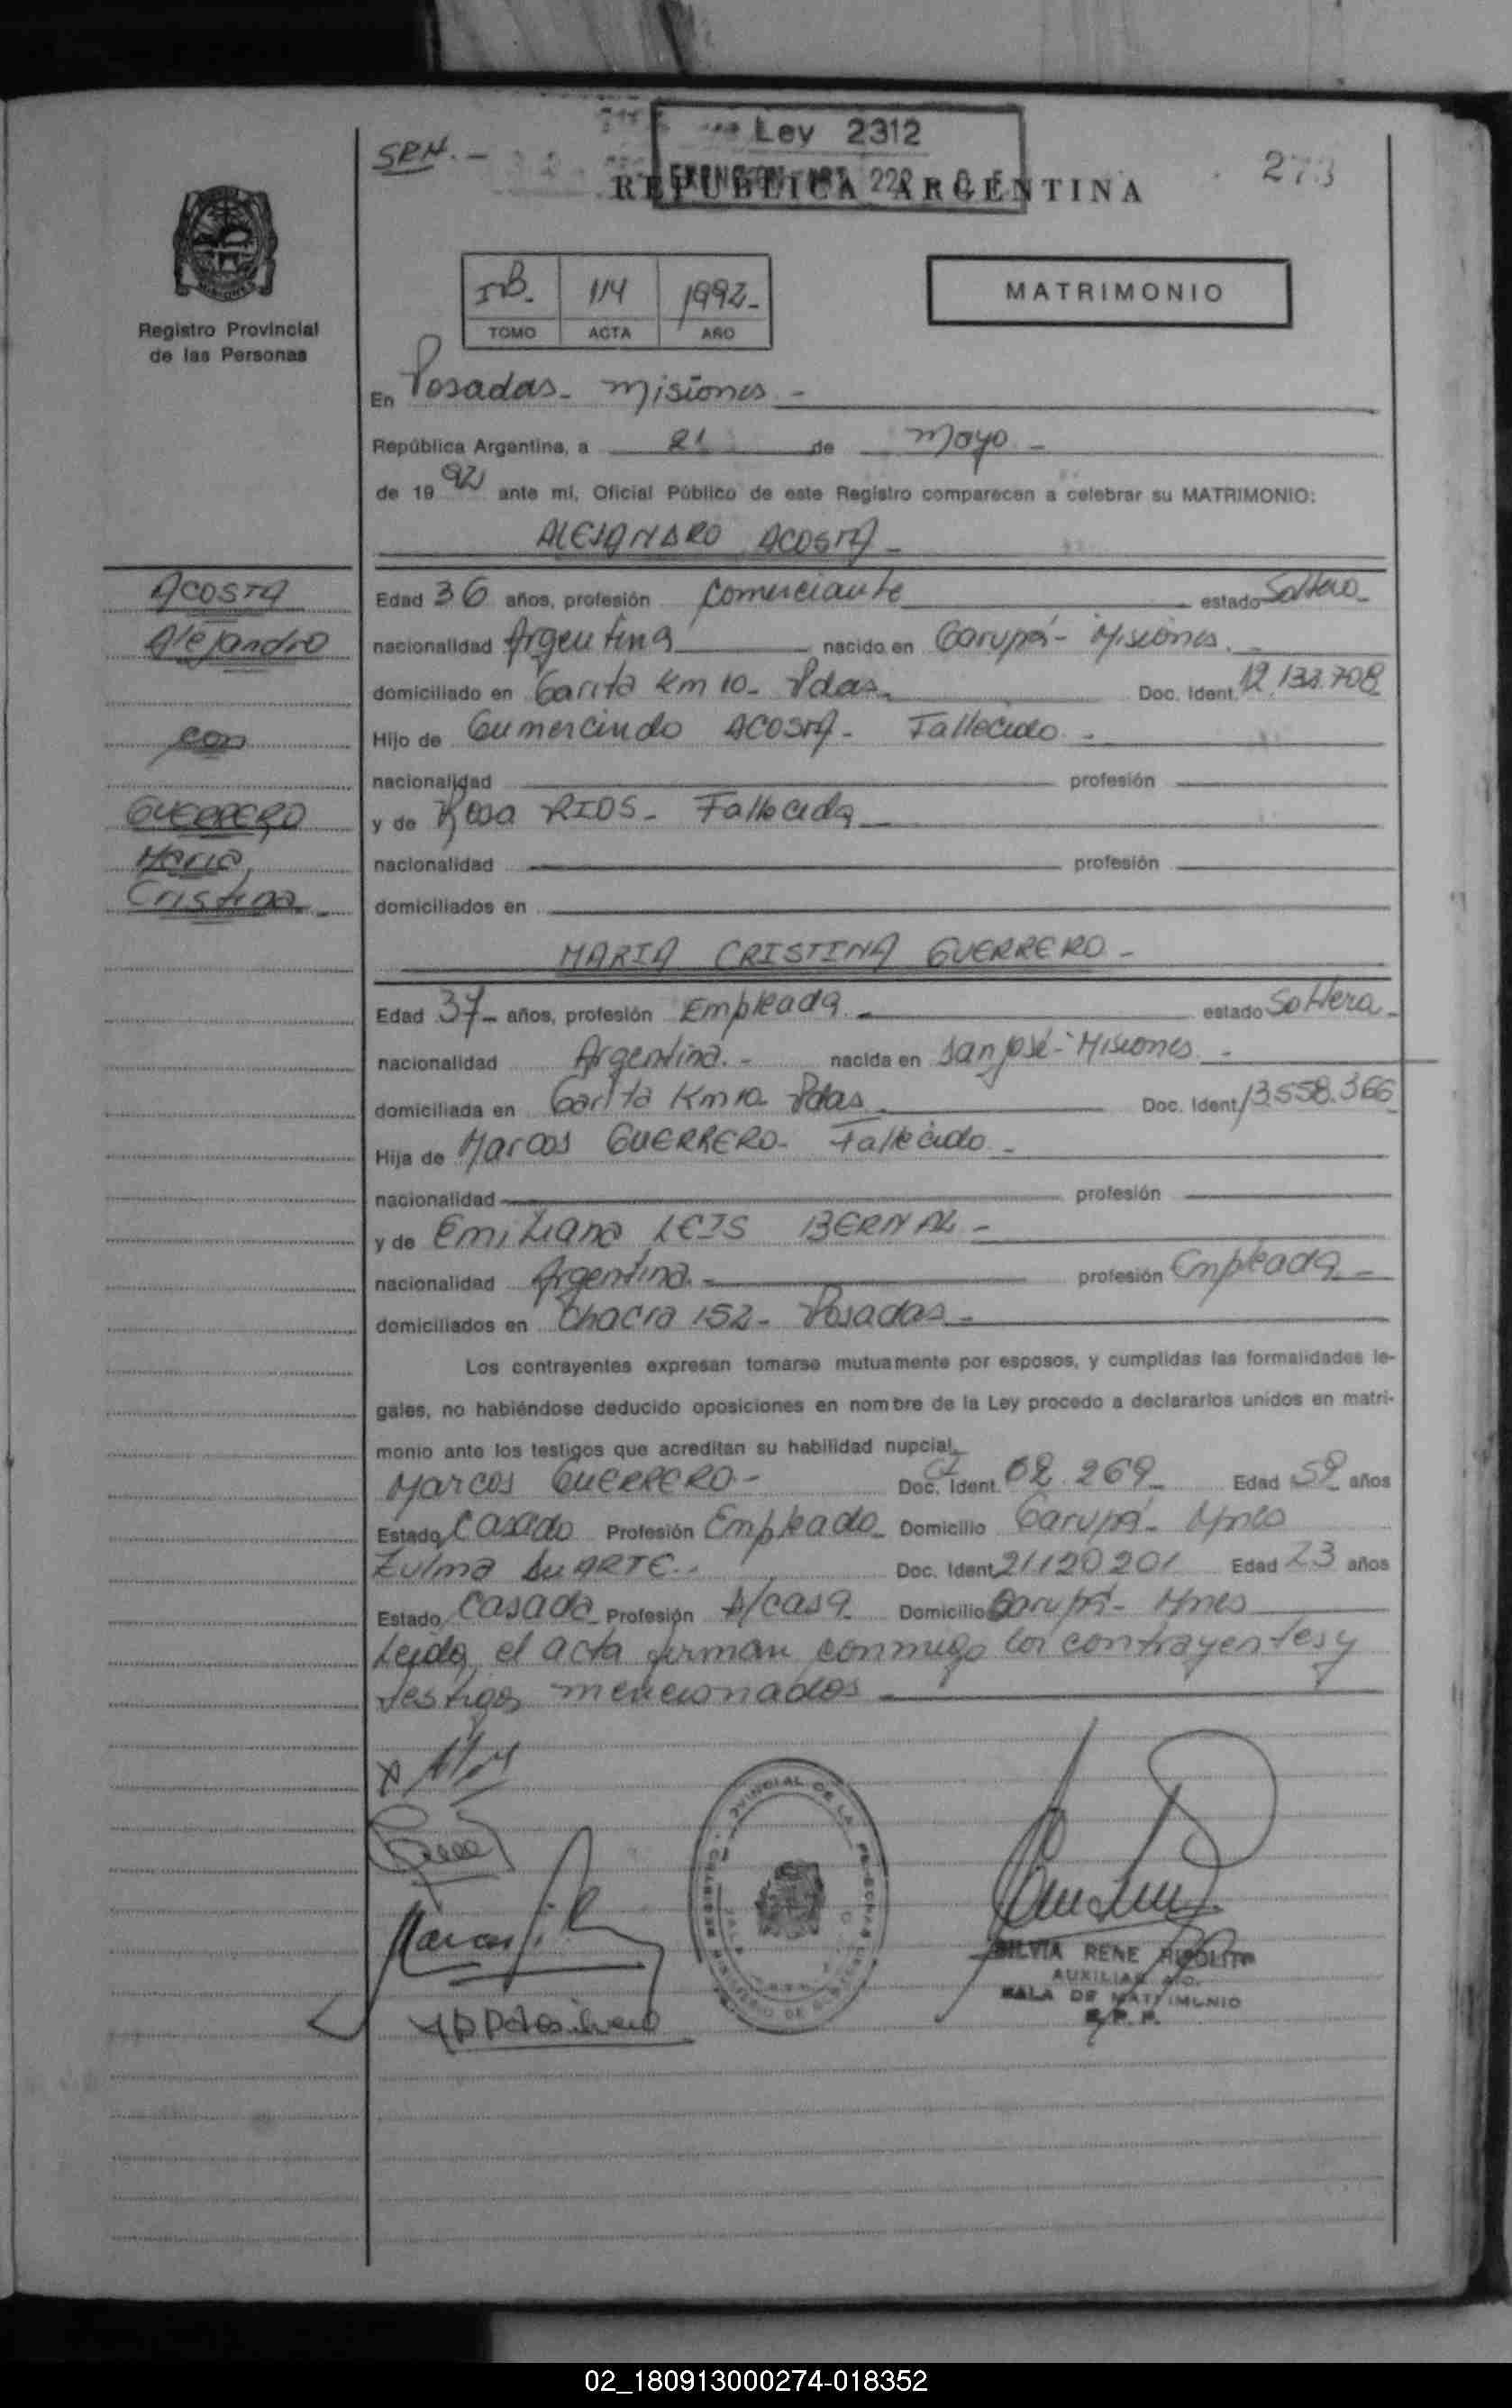 SRH. -
Ley 2312
REPUBLICA ARGENTINA
273
Registro Provincial
de las Personas
IB. 114 1992-
TOMO ACTA AÑO
MATRIMONIO
En Posadas - Misiones -
República Argentina, a 21 de Mayo -
de 19 92 ante mí, Oficial Público de este Registro comparecen a celebrar su MATRIMONIO:
ALEJANDRO ACOSTA -
ACOSTA
Alejandro
con
GUERRERO
Maria
Cristina -
Edad 36 años, profesión Comerciante estado Soltero -
nacionalidad Argentina nacido en Garupá - Misiones.
domiciliado en Garita Km 10 - Pdas. Doc. Ident. 12.132.708
Hijo de Gumercindo ACOSTA - Fallecido -
nacionalidad profesión
y de Rosa RIOS - Fallecida
nacionalidad profesión
domiciliados en
MARIA CRISTINA GUERRERO -
Edad 37 - años, profesión Empleada - estado Soltera -
nacionalidad Argentina. - nacida en San José - Misiones -
domiciliada en Garita Km 10 Pdas Doc. Ident. 13.558.366
Hija de Marcos GUERRERO - Fallecido -
nacionalidad profesión
y de Emiliana LEIS BERNAL -
nacionalidad Argentina. - profesión Empleada -
domiciliados en Chacra 152 - Posadas -
Los contrayentes expresan tomarse mutuamente por esposos, y cumplidas las formalidades le-
gales, no habiéndose deducido oposiciones en nombre de la Ley procedo a declararlos unidos en matri-
monio ante los testigos que acreditan su habilidad nupcial.
Marcos GUERRERO - Doc. Ident. 02.269 - Edad 52 años
Estado Casado Profesión Empleado - Domicilio Garupá - Mnes
Zulma DUARTE - Doc. Ident. 21.120.201 Edad 23 años
Estado Casada - Profesión A/casa Domicilio Garupá - Mnes
Leida el acta firman conmigo los contrayentes y
testigos mencionados
SILVIA RENE RIPOLITO
AUXILIAR
SALA DE MATRIMONIO
R. P. P.
02_180913000274-018352